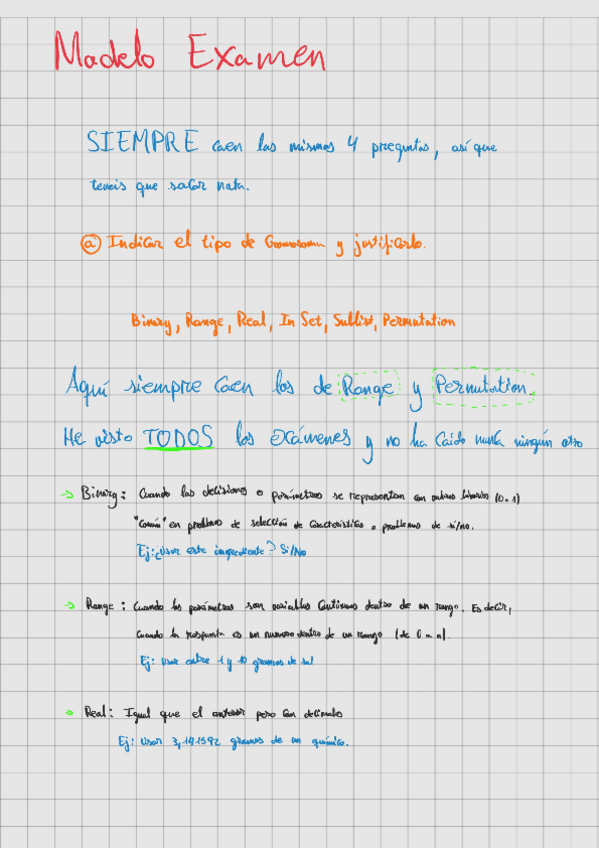 Modelo Examen
SIEMPRE caen las mismas 4 preguntas, así que
teneis que sacar nota.
ⓐ Indicar el tipo de Cromosoma y justificarlo.
Binary, Range, Real, In Set, Sublist, Permutation
Aquí siempre caen los de Range y Permutation.
He visto TODOS los exámenes y no ha caído nunca ningún otro
→ Binary: Cuando las decisiones o parámetros se representan con valores binarios (0-1)
"Común" en problemas de selección de características o problemas de sí/no.
Ej: ¿Usar este ingrediente? Si/No
→ Range: Cuando los parámetros son variables continuas dentro de un rango. Es decir,
cuando la respuesta es un numero dentro de un rango (de 0 a n).
Ej: Usar entre 1 y 10 gramos de sal
→ Real: Igual que el anterior pero con decimales
Ej: Usar 3,141592 gramos de un químico.